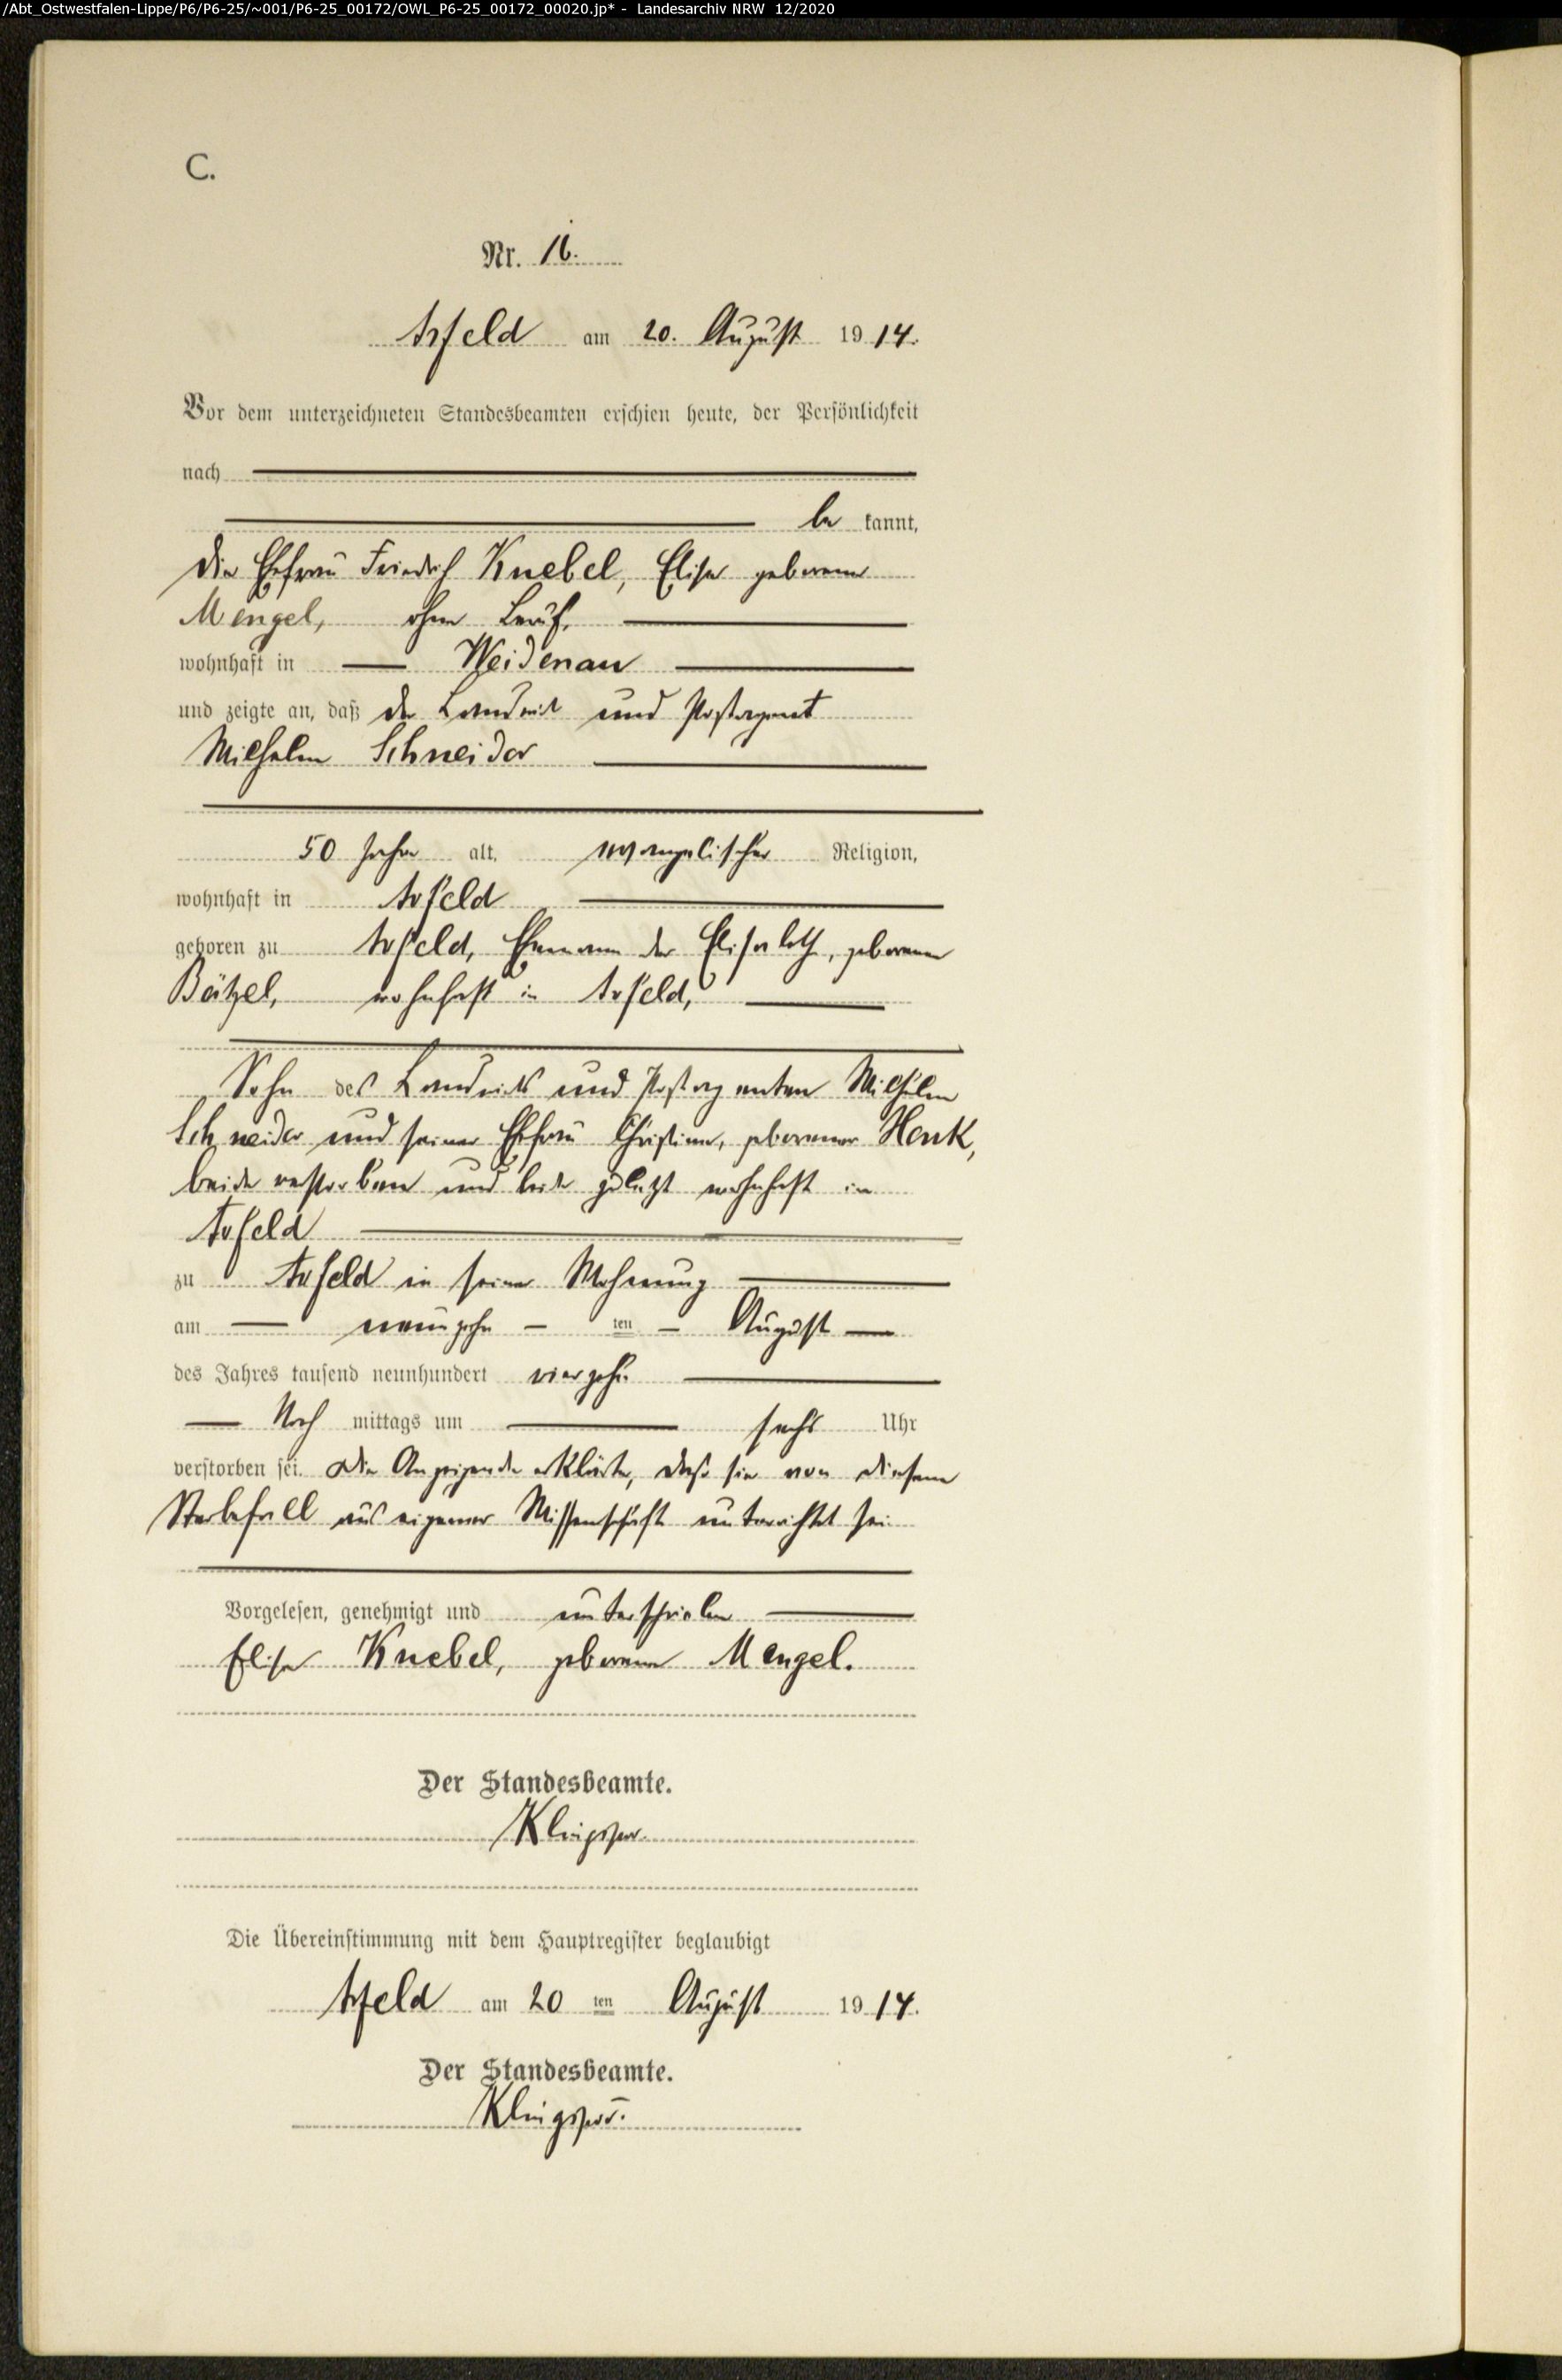 /Abt_Ostwestfalen-Lippe/P6/P6-25/~001/P6-25_00172/OWL_P6-25_00172_00020.jp* - Landesarchiv NRW 12/2020
C.
Nr. 16.
Arfeld am 20. August 1914.
Vor dem unterzeichneten Standesbeamten erschien heute, der Persönlichkeit
nach
be kannt,
die Ehefrau Friedrich Knebel, Elise geborene
Mengel, ohne Beruf,
wohnhaft in Weidenau
und zeigte an, daß der Landwirt und Postagent
Wilhelm Schneider
50 Jahre alt, evangelischer Religion,
wohnhaft in Arfeld
geboren zu Arfeld, Ehemann der Elisabeth, geborenen
Bätzel, wohnhaft in Arfeld,
Sohn des Landwirts und Postagenten Wilhelm
Schneider und seiner Ehefrau Christine, geborener Henk,
beide verstorben und beide zuletzt wohnhaft in
Arfeld
zu Arfeld in seiner Wohnung
am neunzehn ten August
des Jahres tausend neunhundert vierzehn
Nach mittags um sechs Uhr
verstorben sei. Die Anzeigende erklärte, daß sie von diesem
Sterbefall aus eigener Wissenschaft unterrichtet sei
Vorgelesen, genehmigt und unterschrieben
Elise Knebel, geborene Mengel.
Der Standesbeamte.
Klingspor.
Die Übereinstimmung mit dem Hauptregister beglaubigt
Arfeld am 20 ten August 1914.
Der Standesbeamte.
Klingspor.